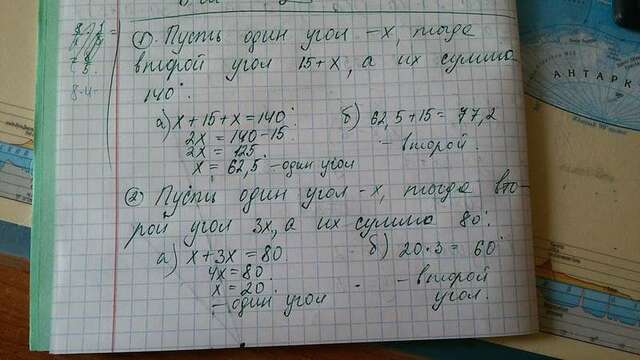 ① Пусть один угол -х, тогда
второй угол 15+х, а их сумма
140°.
а) х+15+х=140° б) 62,5+15=77,2
2х=140-15 - второй.
2х=125
х=62,5 - один угол
② Пусть один угол -х, тогда вто-
рой угол 3х, а их сумма 80°.
а) х+3х=80 б) 20·3=60°
4х=80 - второй
х=20 угол.
- один угол
АНТАРК